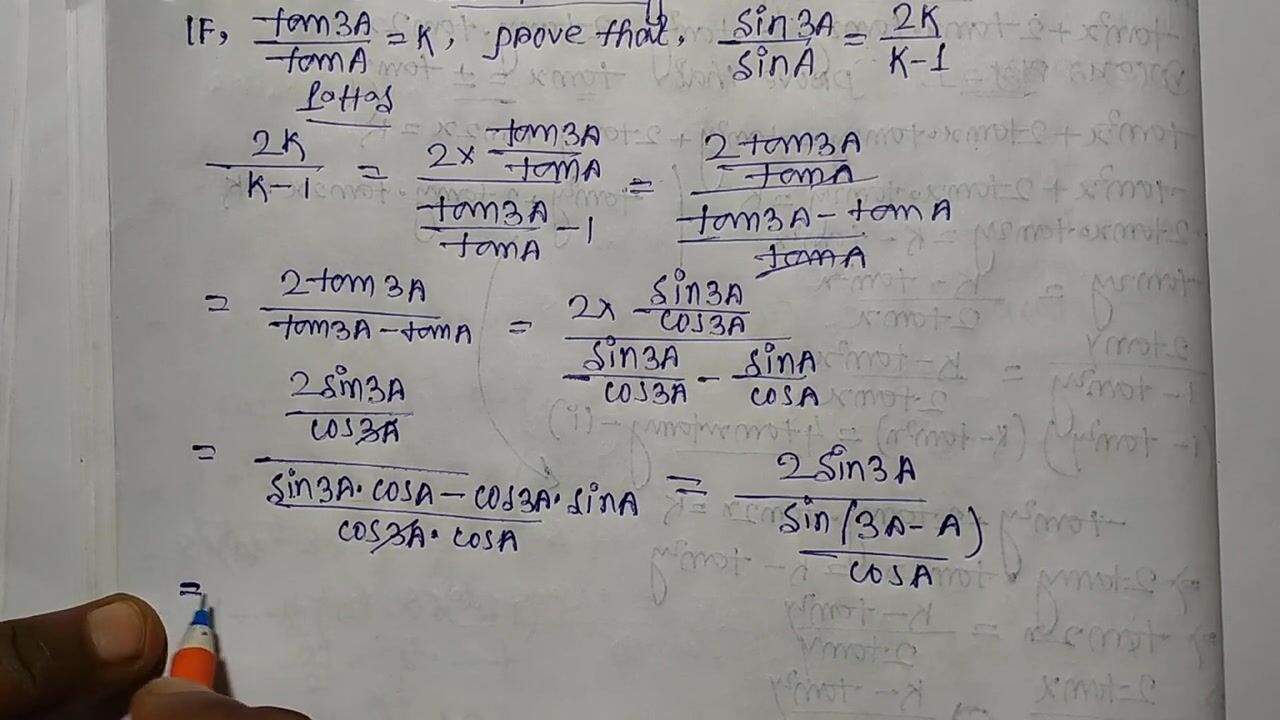 IF, tan3A/tanA = K, prove that, sin3A/sinA = 2K/K-1
2K/K-1 = 2× tan3A/tanA / tan3A/tanA - 1 = 2tan3A/tanA / tan3A - tanA/tanA
= 2tan3A/tan3A - tanA = 2× sin3A/cos3A / sin3A/cos3A - sinA/cosA
= 2sin3A/cos3A / sin3A·cosA - cos3A·sinA/cos3A·cosA = 2sin3A / sin(3A-A)/cosA
=